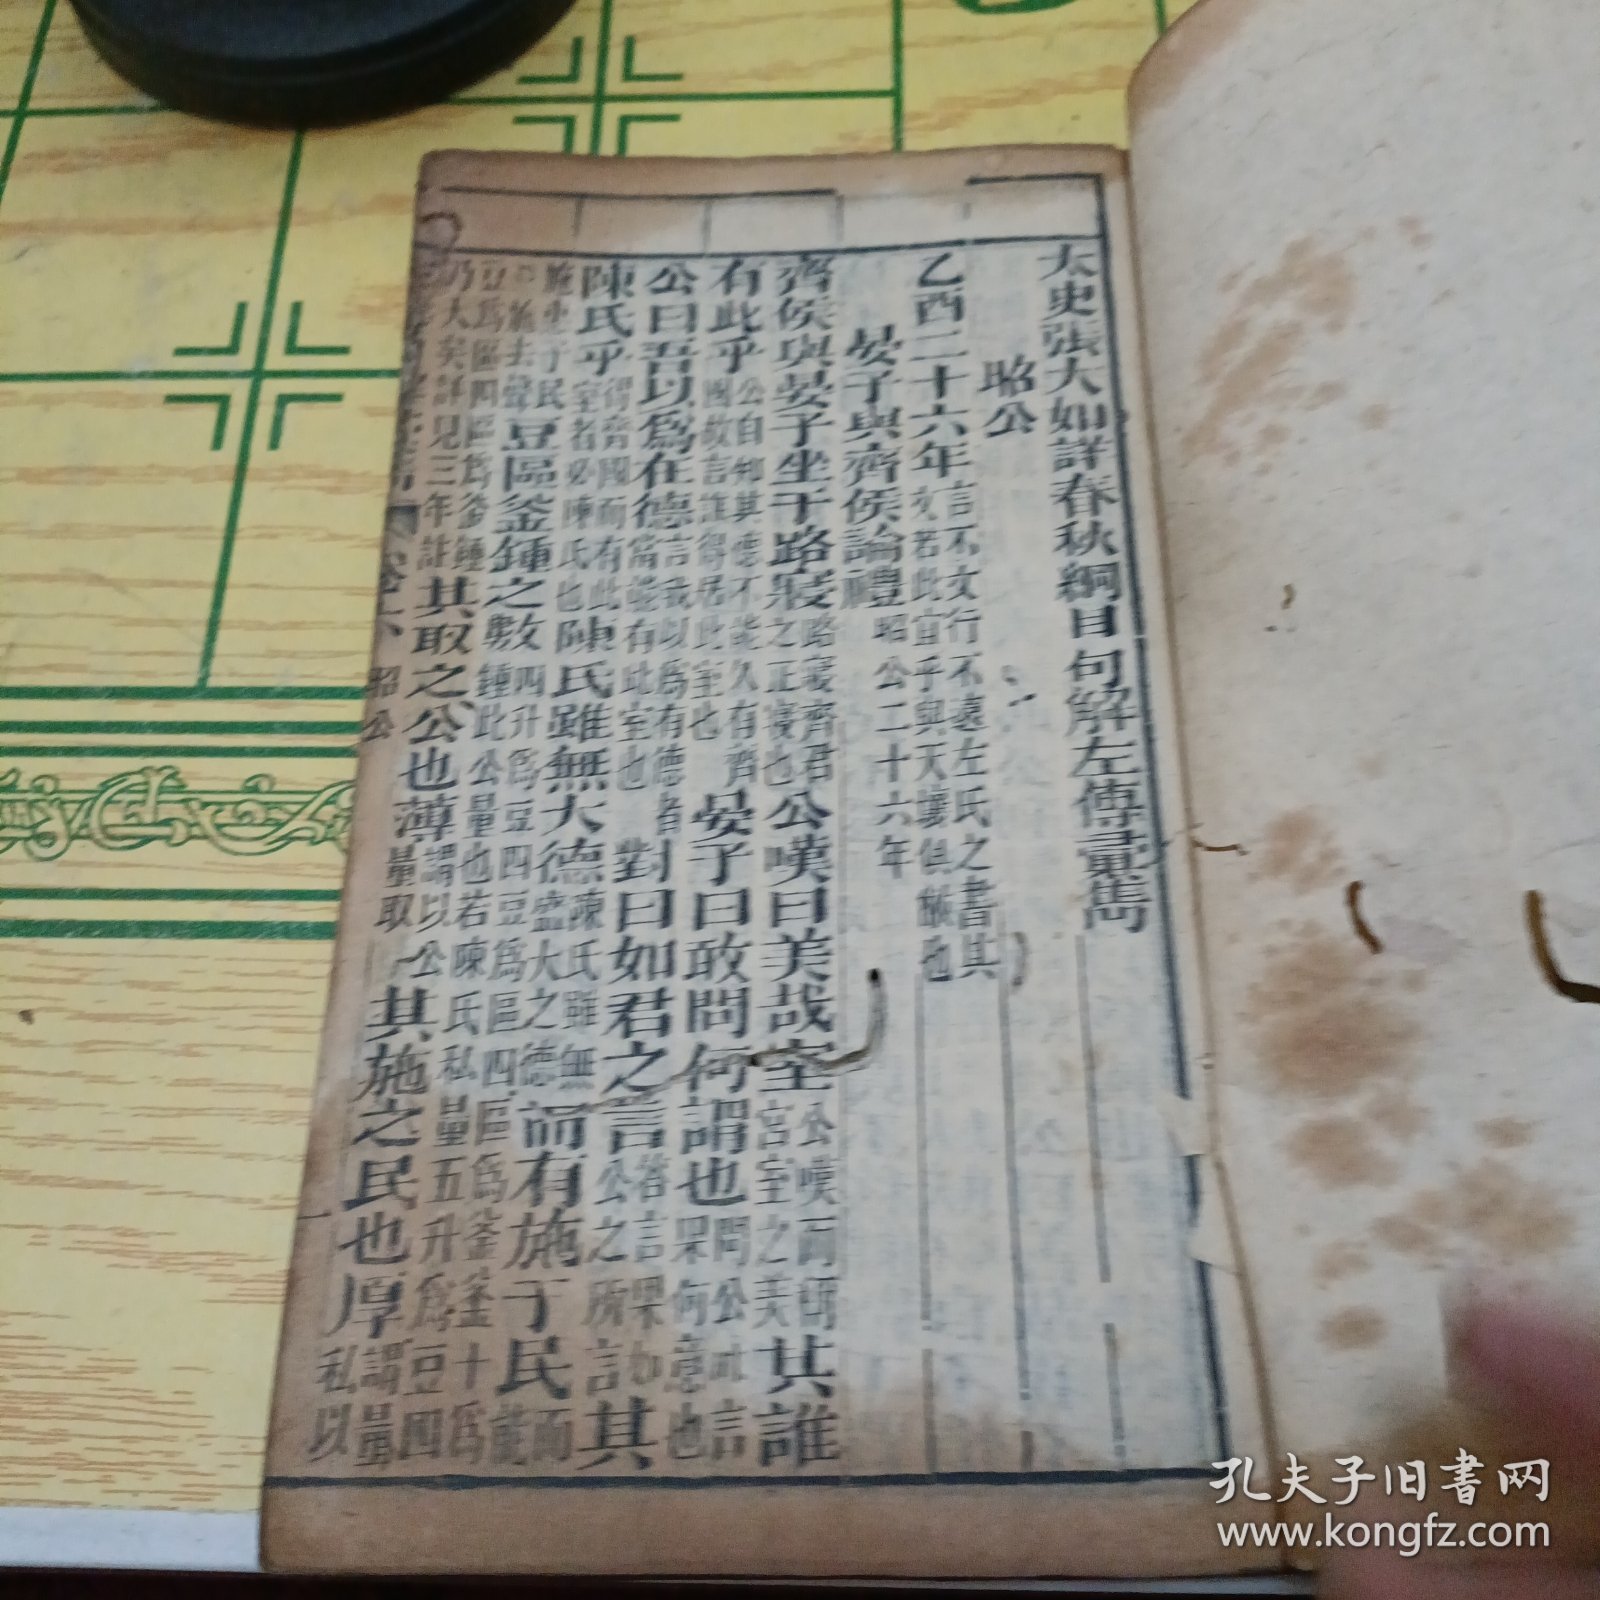 太史張大如詳春秋綱目句解左傳彙雋
昭公
乙酉二十六年 言不文行不遠左氏之書其文若此宜乎與天壤俱敝也
晏子與齊侯論禮 昭公二十六年
齊侯與晏子坐于路寢 路寢齊君之正寢也 公嘆曰美哉室 公嘆而稱宮室之美 其誰
有此乎 公自知其德不能久有齊國故言誰得居此室也 晏子曰敢問何謂也 問公此言果何意也
公曰吾以爲在德 言我以爲有德者當能有此室也 對曰如君之言 答言果如公之所言 其
陳氏乎 得齊國而有此室者必陳氏也 陳氏雖無大德 陳氏雖無盛大之德 而有施于民 而能
施去聲 豆區釜鍾之數 四升爲豆四豆爲區四區爲釜釜十爲鍾此公量也若陳氏私量五升爲豆四
豆爲區四區爲釜鍾乃大矣詳見三年註 其取之公也薄 謂以公量取 其施之民也厚 謂以私量
昭公
一
孔夫子旧書网
www.kongfz.com